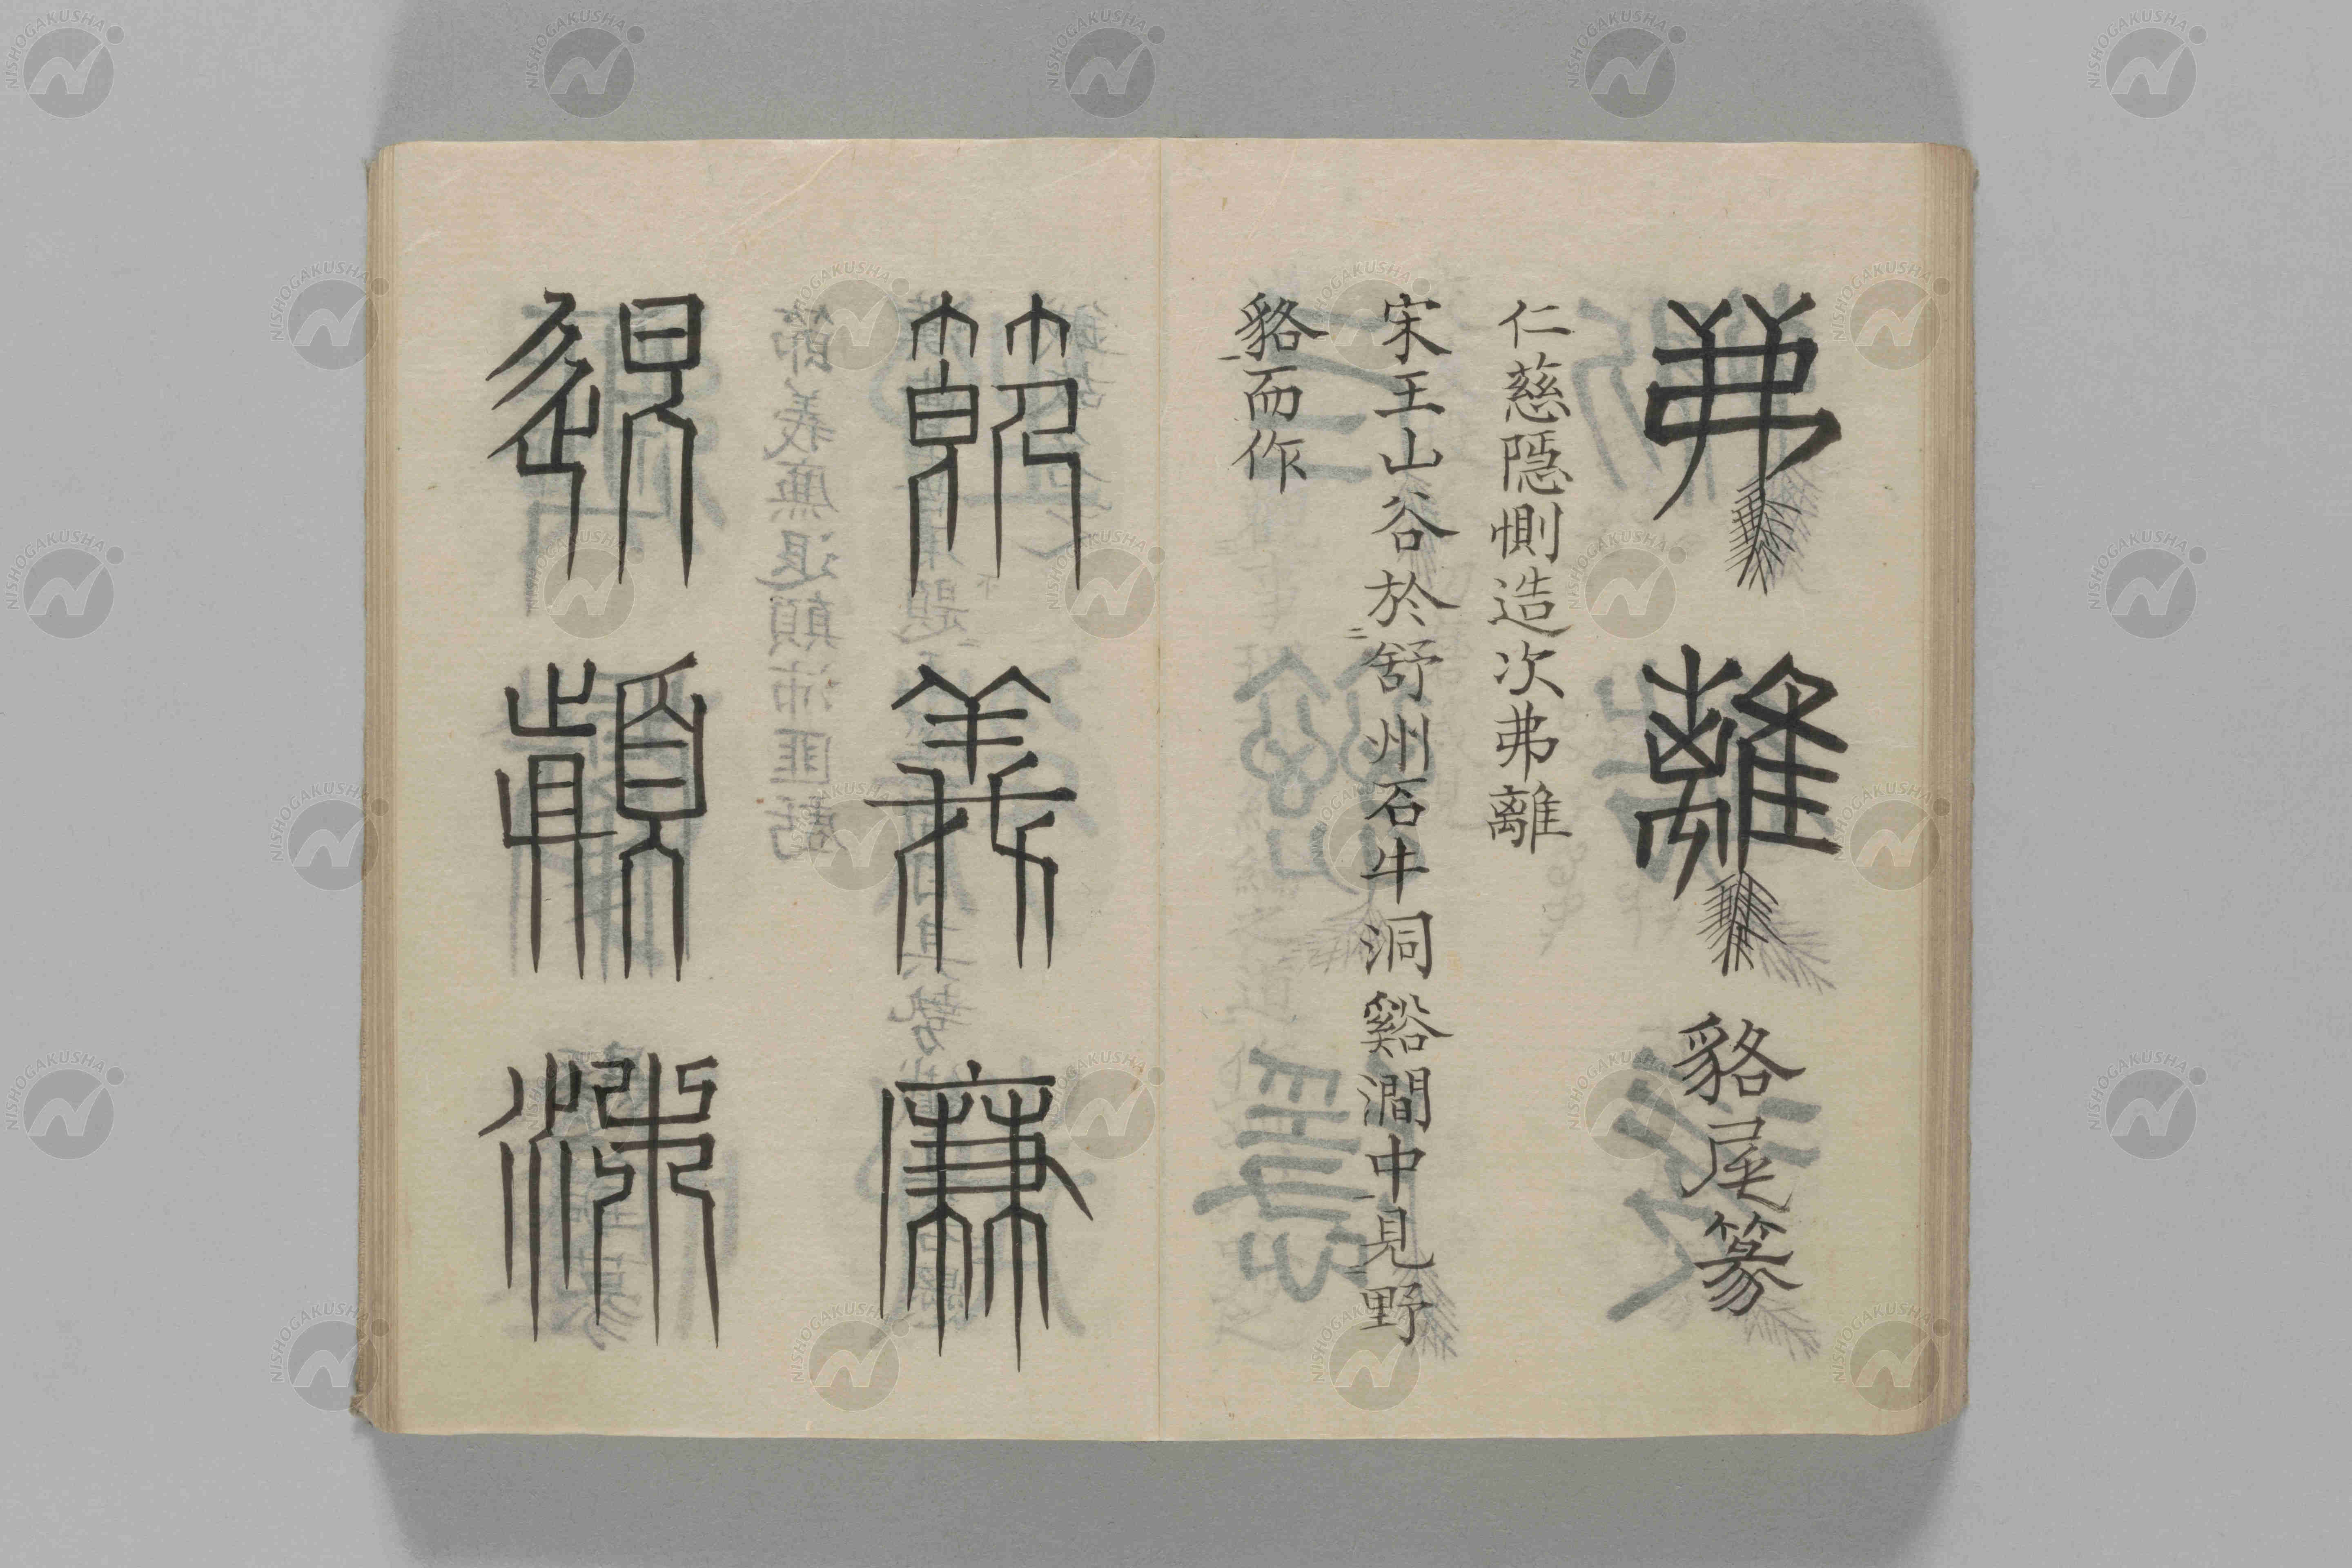 弗離 貉尾篆
仁慈隠惻造次弗離
宋王山谷於舒州石牛洞谿澗中見野
貉而作
節義廉
退顛沛